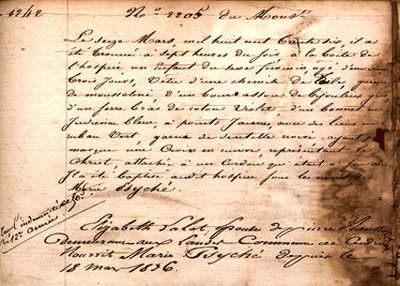 4242
No. 2205 du Monst.
Le seize Mars, mil huit cent trente six, il a
été trouvé à sept heures du soir à la porte de
l'hospice un Enfant du sexe féminin âgé d'environ
trois jours, Vêtu d'une chemise de toile garnie
de mousseline d'un
d'un serre tête de coton Violet d'un bonnet
indienne bleue, à pointes Jaunes avec des
ruban Vert, garnie de dentelle noire, ayant p
marque une Croix en cuivre, représentant le
Christ, attaché à un Cordon qui était
Il a été Baptisé audit hospice sous les noms de
Marie Psyché.
12e année.
Elizabeth épouse de pierre
demeurant aux Commune de
Nourrit Marie Psyché depuis le
18 mars 1836.